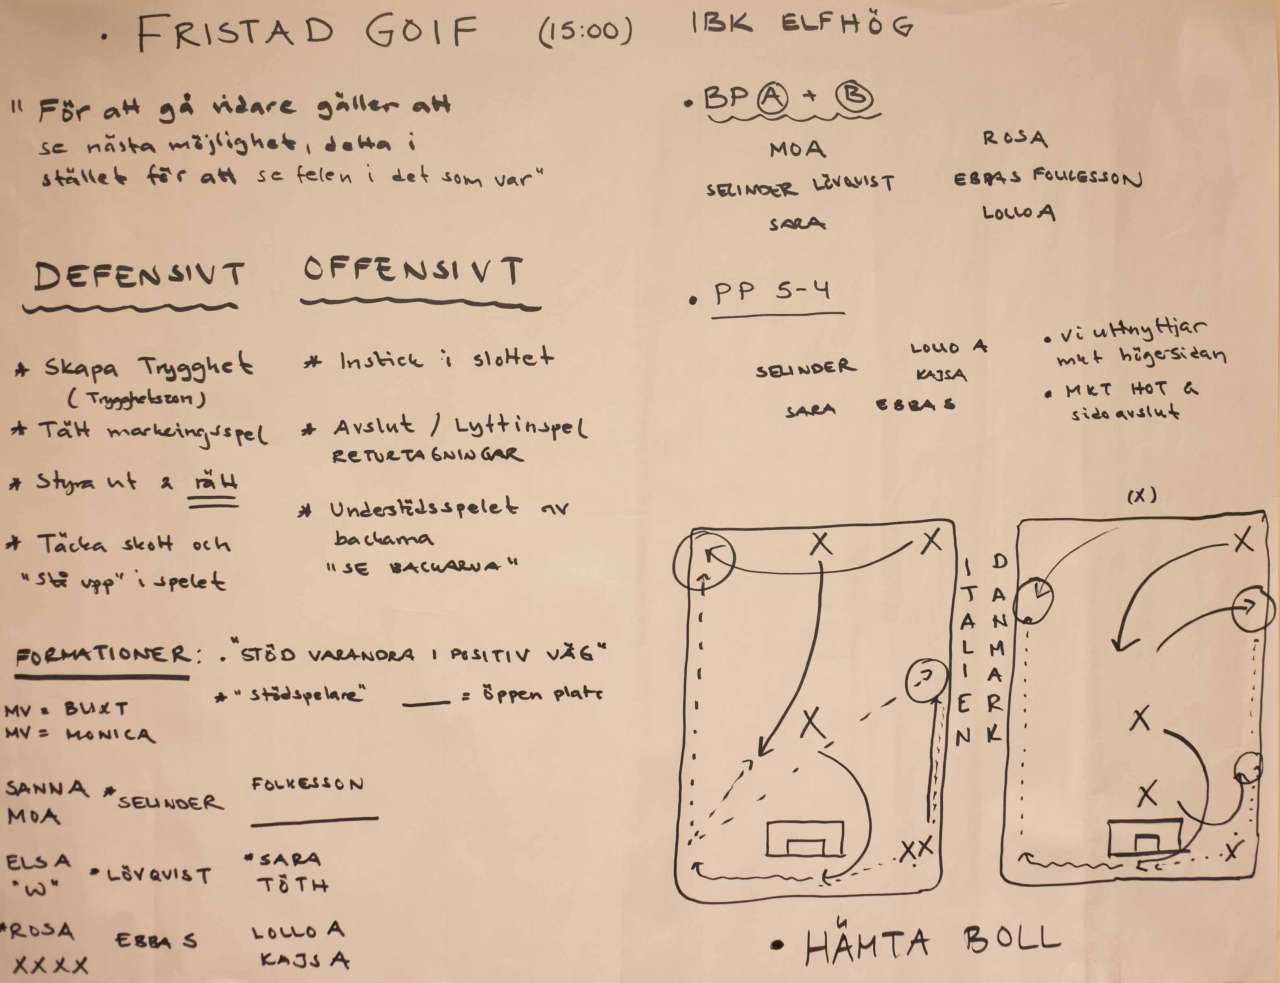 • FRISTAD GOIF (15:00) IBK ELFHÖG
"För att gå vidare gäller att
se nästa möjlighet, detta i
stället för att se felen i det som var"
DEFENSIVT
* Skapa Trygghet
(Trygghetszon)
* Tätt markeingsspel
* Styra ut & rätt
* Täcka skott och
"Stå upp" i spelet
OFFENSIVT
* Instick i slottet
* Avslut / Lyttinspel
RETURTAGNINGAR
* Understödsspelet av
backarna
"SE BACKARNA"
FORMATIONER: . "STÖD VARANDRA I POSITIV VÄG"
* "Stödspelare" ___ = öppen plats
MV = BUXT
MV = MONICA
SANNA *SELINDER FOLKESSON
MOA
ELSA *LÖVQVIST *SARA
"W" TÖTH
*ROSA EBBA S LOLLO A
XXXX KAJSA
• BP A + B
MOA ROSA
SELINDER LÖVQVIST EBBAS FOLKESSON
SARA LOLLO A
• PP 5-4
SELINDER LOLLO A
KAJSA
SARA EBBA S
• Vi uttnyttjar
mkt högersidan
• MKT HOT &
sidoavslut
(X)
X X X
ITALIEN
DANMARK
X X
X
XX X
• HÄMTA BOLL